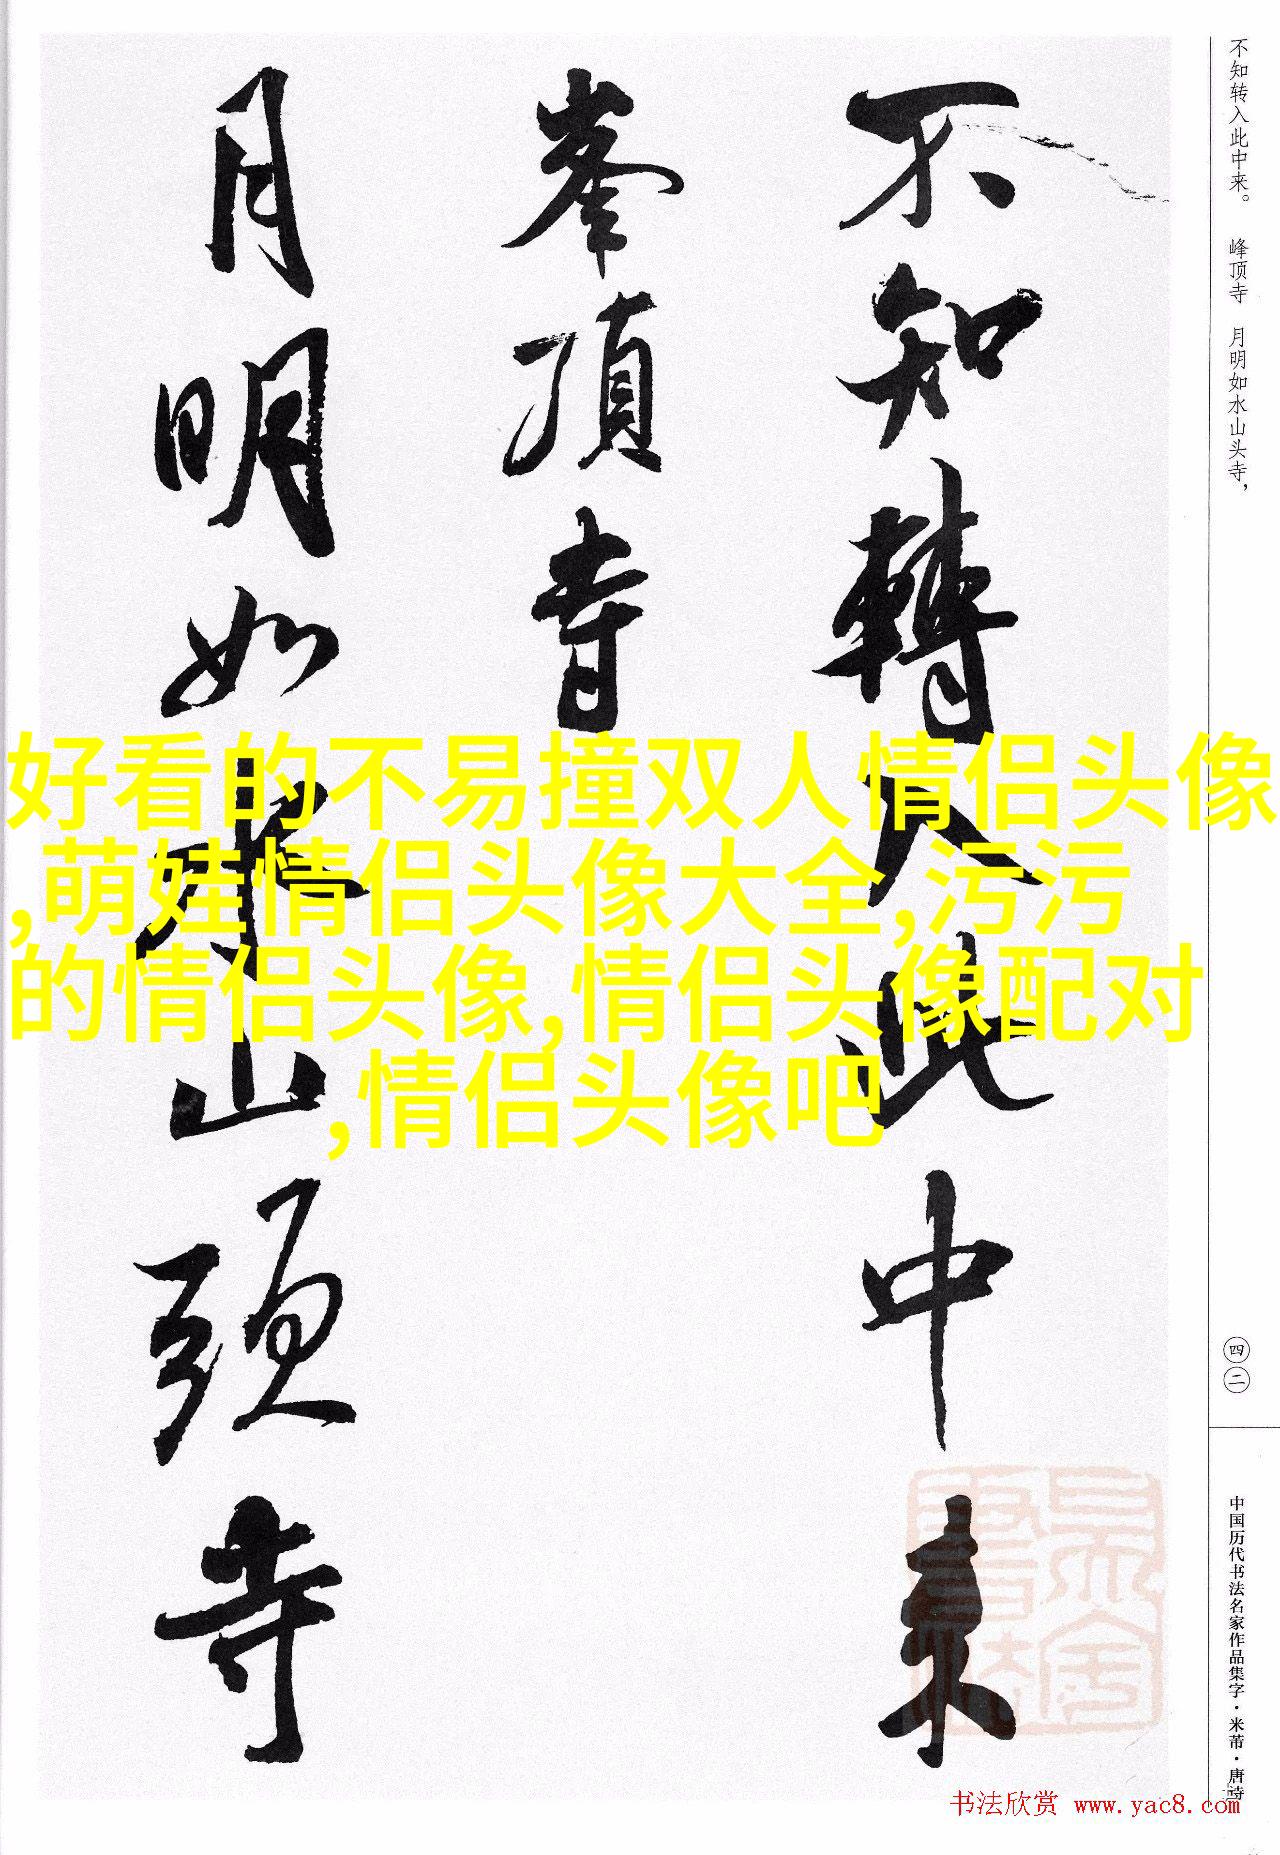 不知轉入此中来
峯頂寺
月明如水山頭寺
好看的不易撞双人情侣头像
,萌娃情侣头像大全,污污
的情侣头像,情侣头像配对
,情侣头像吧
不知转入此中来。 峰顶寺 月明如水山头寺，
四二
中国历代书法名家作品集字·米芾·唐诗
书法欣赏 www.yac8.com